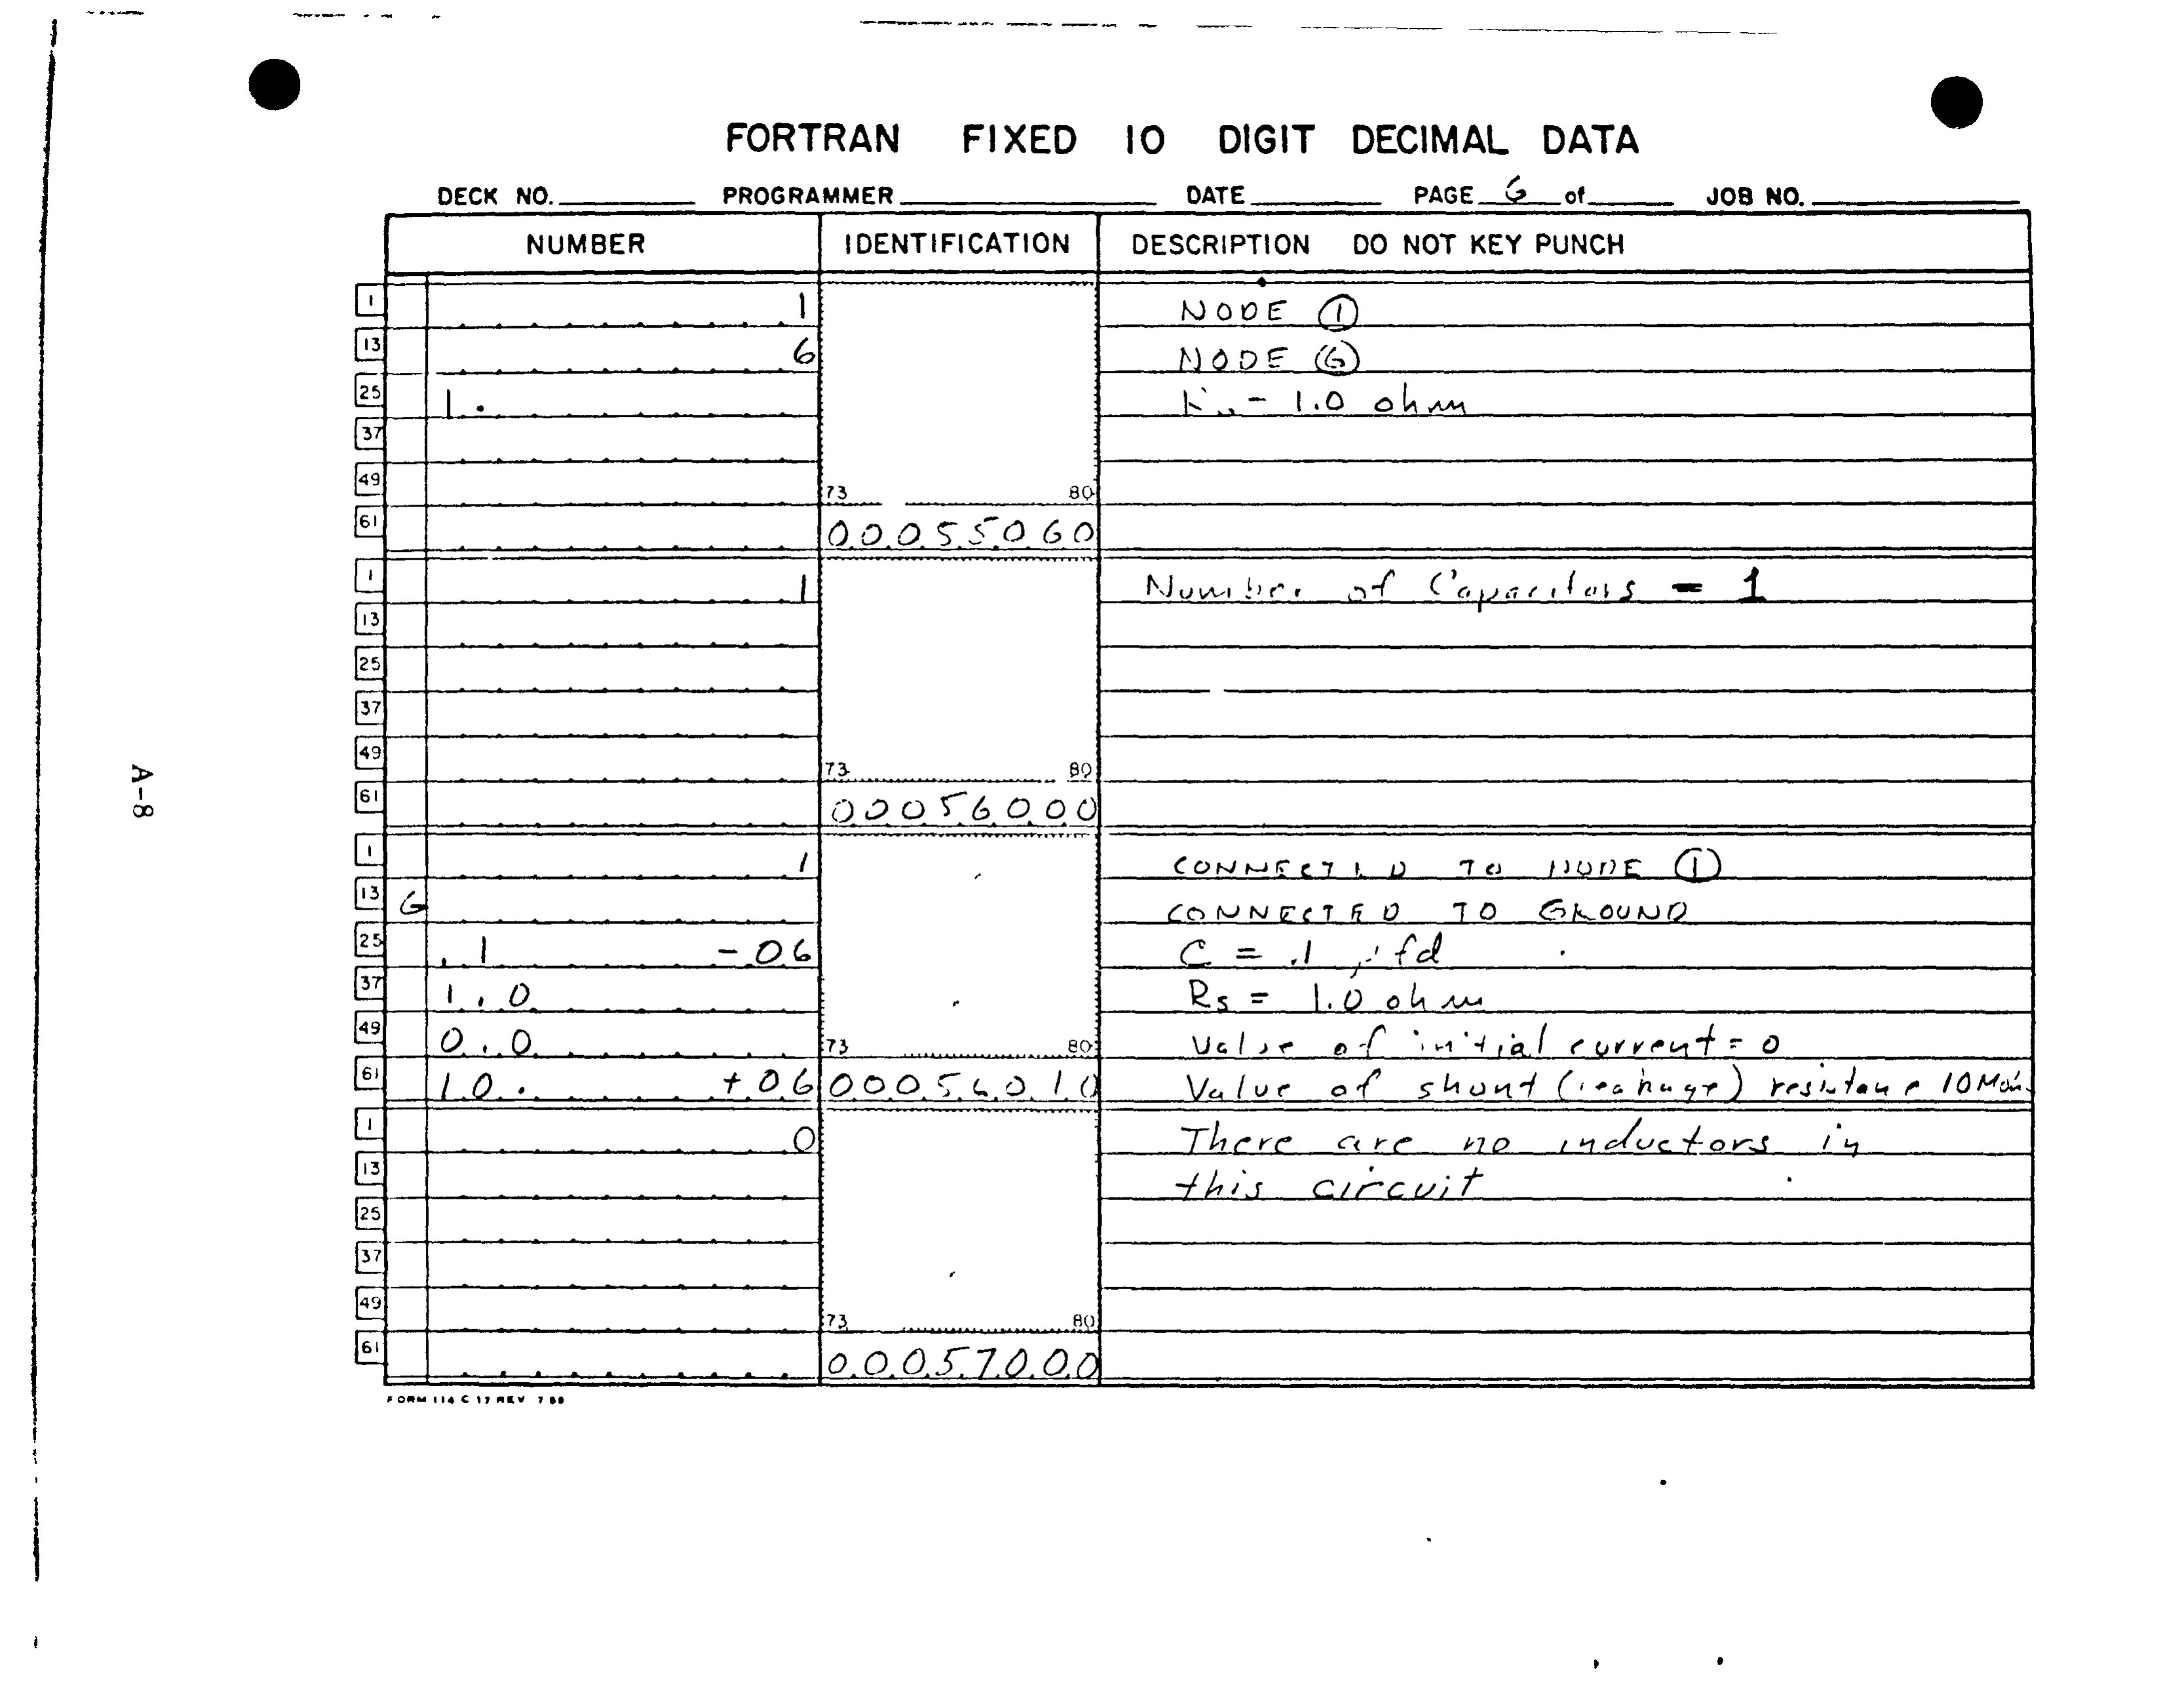 FORTRAN FIXED 10 DIGIT DECIMAL DATA
DECK NO. PROGRAMMER DATE PAGE 6 of JOB NO.
NUMBER IDENTIFICATION DESCRIPTION DO NOT KEY PUNCH
1 1 NODE ①
13 6 NODE ⑥
25 1. - 1.0 ohm
37
49 73 80
61 00055060
1 1 Number of Capacitors = 1
13
25
37
49 73 80
61 00056000
1 1 CONNECTED TO NODE ①
13 G CONNECTED TO GROUND
25 .1 -06 C = .1 fd
37 1.0 Rs = 1.0 ohm
49 0.0 73 80 Value of initial current = 0
61 10. +06 00056010 Value of shunt (leakage) resistance 10
1 0 There are no inductors in
13 this circuit
25
37
49 73 80
61 00057000
FORM 114 C 17 REV
A-8